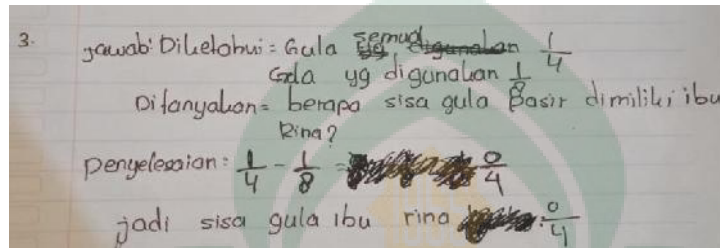 3. Jawab: Diketahui = Gula semua 1/4
Gula yg digunakan 1/8
Ditanyakan = berapa sisa gula Pasir dimiliki ibu
Rina?
Penyelesaian : 1/4 - 1/8 = 0/4
jadi sisa gula ibu rina 0/4